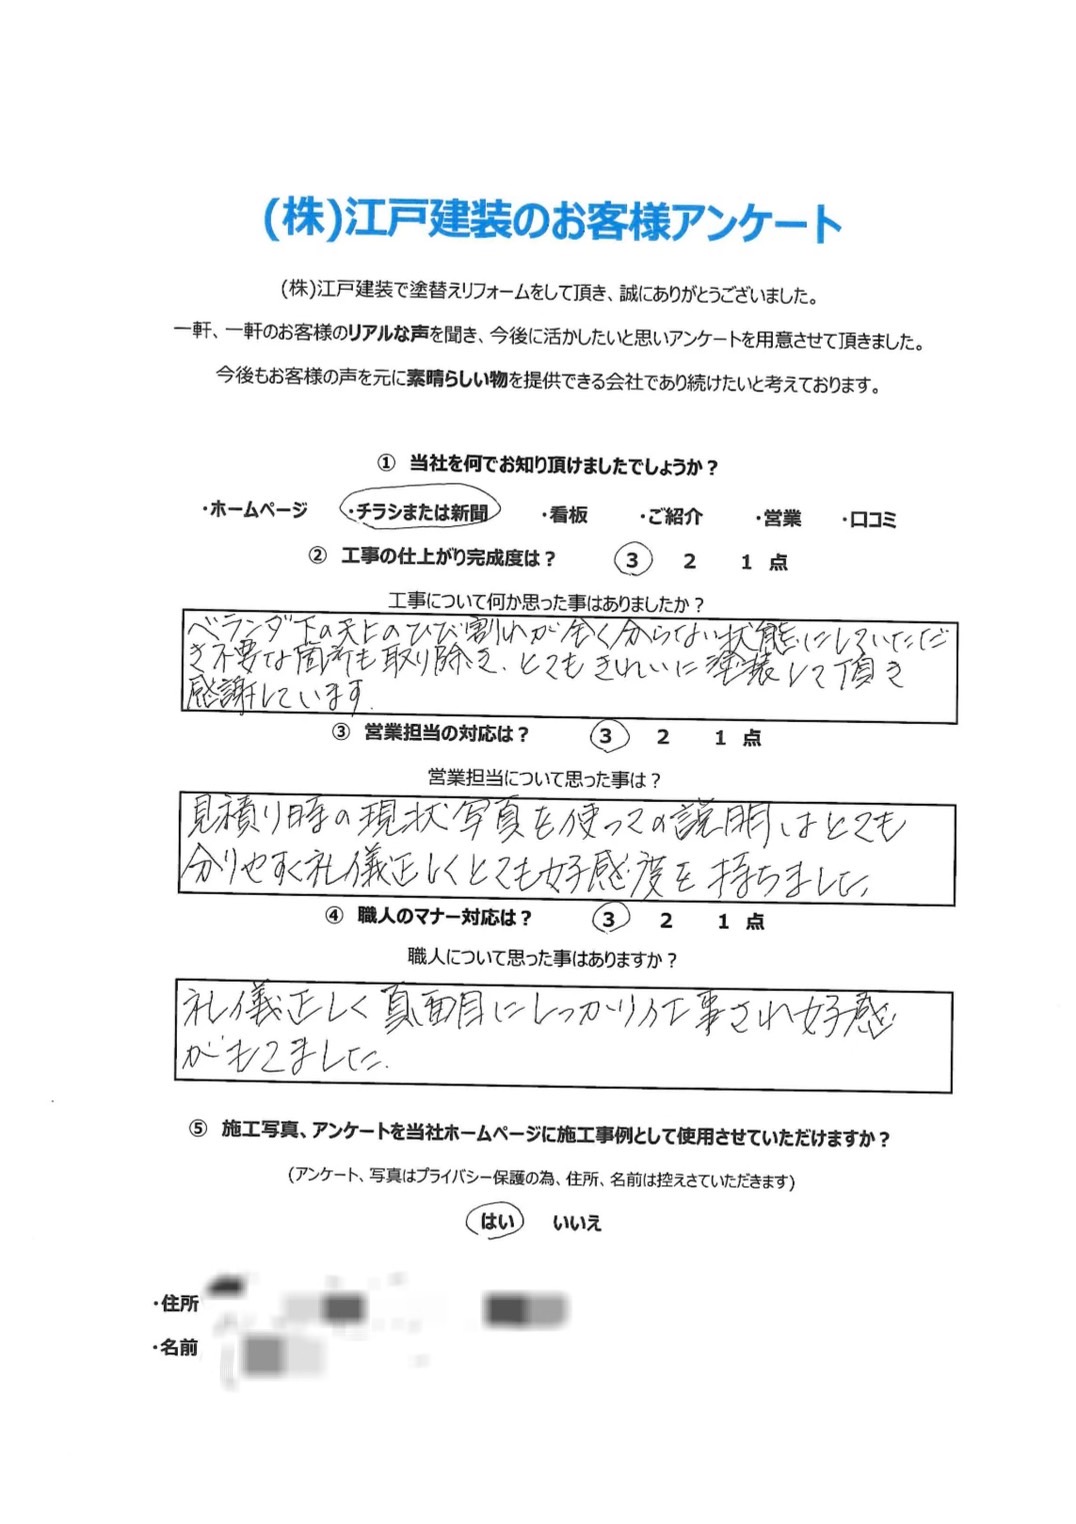 (株)江戸建装のお客様アンケート
(株)江戸建装で塗替えリフォームをして頂き、誠にありがとうございました。
一軒、一軒のお客様のリアルな声を聞き、今後に活かしたいと思いアンケートを用意させて頂きました。
今後もお客様の声を元に素晴らしい物を提供できる会社であり続けたいと考えております。
① 当社を何でお知り頂けましたでしょうか？
・ホームページ ・チラシまたは新聞 ・看板 ・ご紹介 ・営業 ・口コミ
② 工事の仕上がり完成度は？ 3 2 1 点
工事について何か思った事はありましたか？
ベランダ下の天上のひび割れが全く分らない状態にしていただ
き不要な箇所も取り除き、とてもきれいに塗装して頂き
感謝しています.
③ 営業担当の対応は？ 3 2 1 点
営業担当について思った事は？
見積り時の現状写真を使っての説明はとても
分りやすく礼儀正しくとても好感度を持ちました.
④ 職人のマナー対応は？ 3 2 1 点
職人について思った事はありますか？
礼儀正しく真面目にしっかり仕事され好感
がもてました.
⑤ 施工写真、アンケートを当社ホームページに施工事例として使用させていただけますか？
(アンケート、写真はプライバシー保護の為、住所、名前は控えさていただきます)
はい いいえ
・住所
・名前